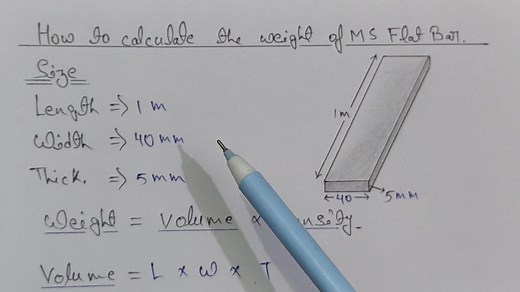 How to calculate the weight of MS Flat Bar.
Size
Length => 1 m
Width => 40 mm
Thick. => 5 mm
1m
40
5mm
Weight = Volume
Volume = L x W x T